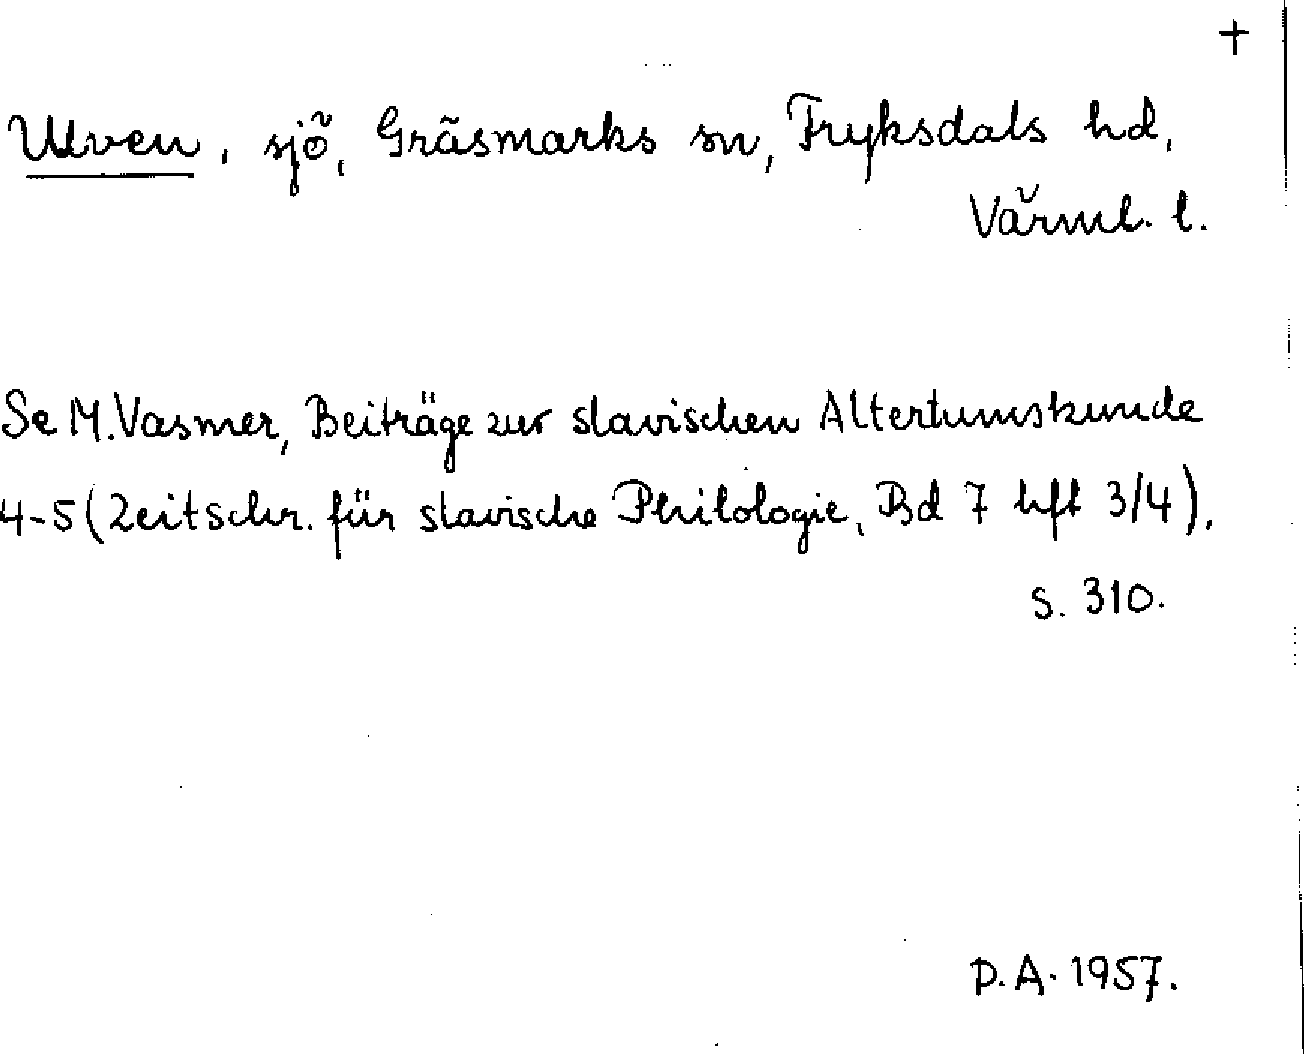 +
Ulven, sjö, Gräsmarks sn, Fryksdals hd,
Värml. l.
Se M. Vasmer, Beiträge zur slavischen Altertumskunde
4-5 (Zeitschr. für slavische Philologie, Bd 7 hft 3/4),
s. 310.
P.A. 1957.